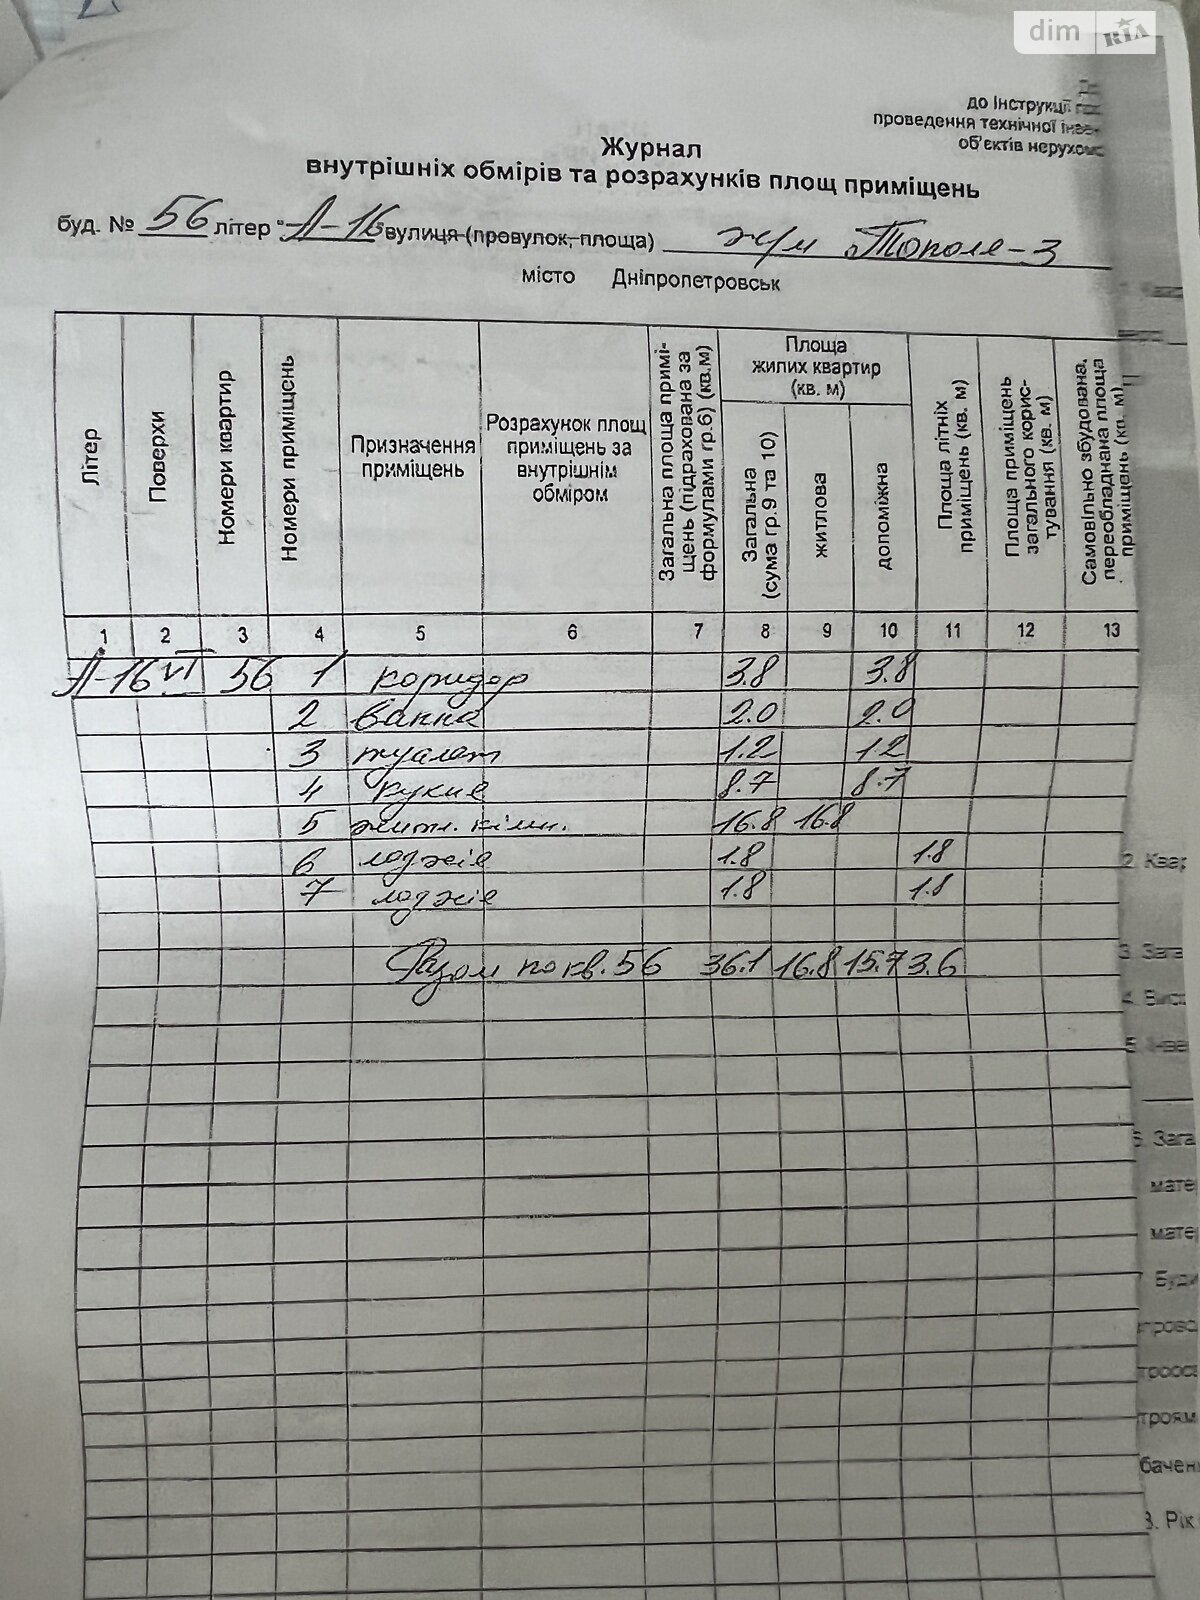 dim RIA
до Інструкції
проведення технічної
об'єктів
Журнал
внутрішніх обмірів та розрахунків площ приміщень
буд. № 56 літер "А-16 вулиця (провулок, площа) ж/м Тополя-3
місто Дніпропетровськ
Літер
Поверхи
Номери квартир
Номери приміщень
Призначення приміщень
Розрахунок площ приміщень за внутрішнім обміром
Загальна площа примі-щень (підрахована за формулами гр.6) (кв.м)
Площа жилих квартир (кв. м)
Загальна (сума гр.9 та 10)
житлова
допоміжна
Площа літніх приміщень (кв. м)
Площа приміщень загального корис-тування (кв. м)
Самовільно збудована, переобладнана площа приміщень (кв. м)
1 2 3 4 5 6 7 8 9 10 11 12 13
А-16 VI 56 1 коридор 3.8 3.8
2 ванна 2.0 2.0
3 туалет 1.2 1.2
4 кухня 8.7 8.7
5 житл. кімн. 16.8 16.8
6 лоджія 1.8 1.8
7 лоджія 1.8 1.8
Разом по кв. 56 36.1 16.8 15.7 3.6
2. Квар
3. Зага
4. Висо
6. Зага
мате
мате
Буди
троям
бачен
8. Рік